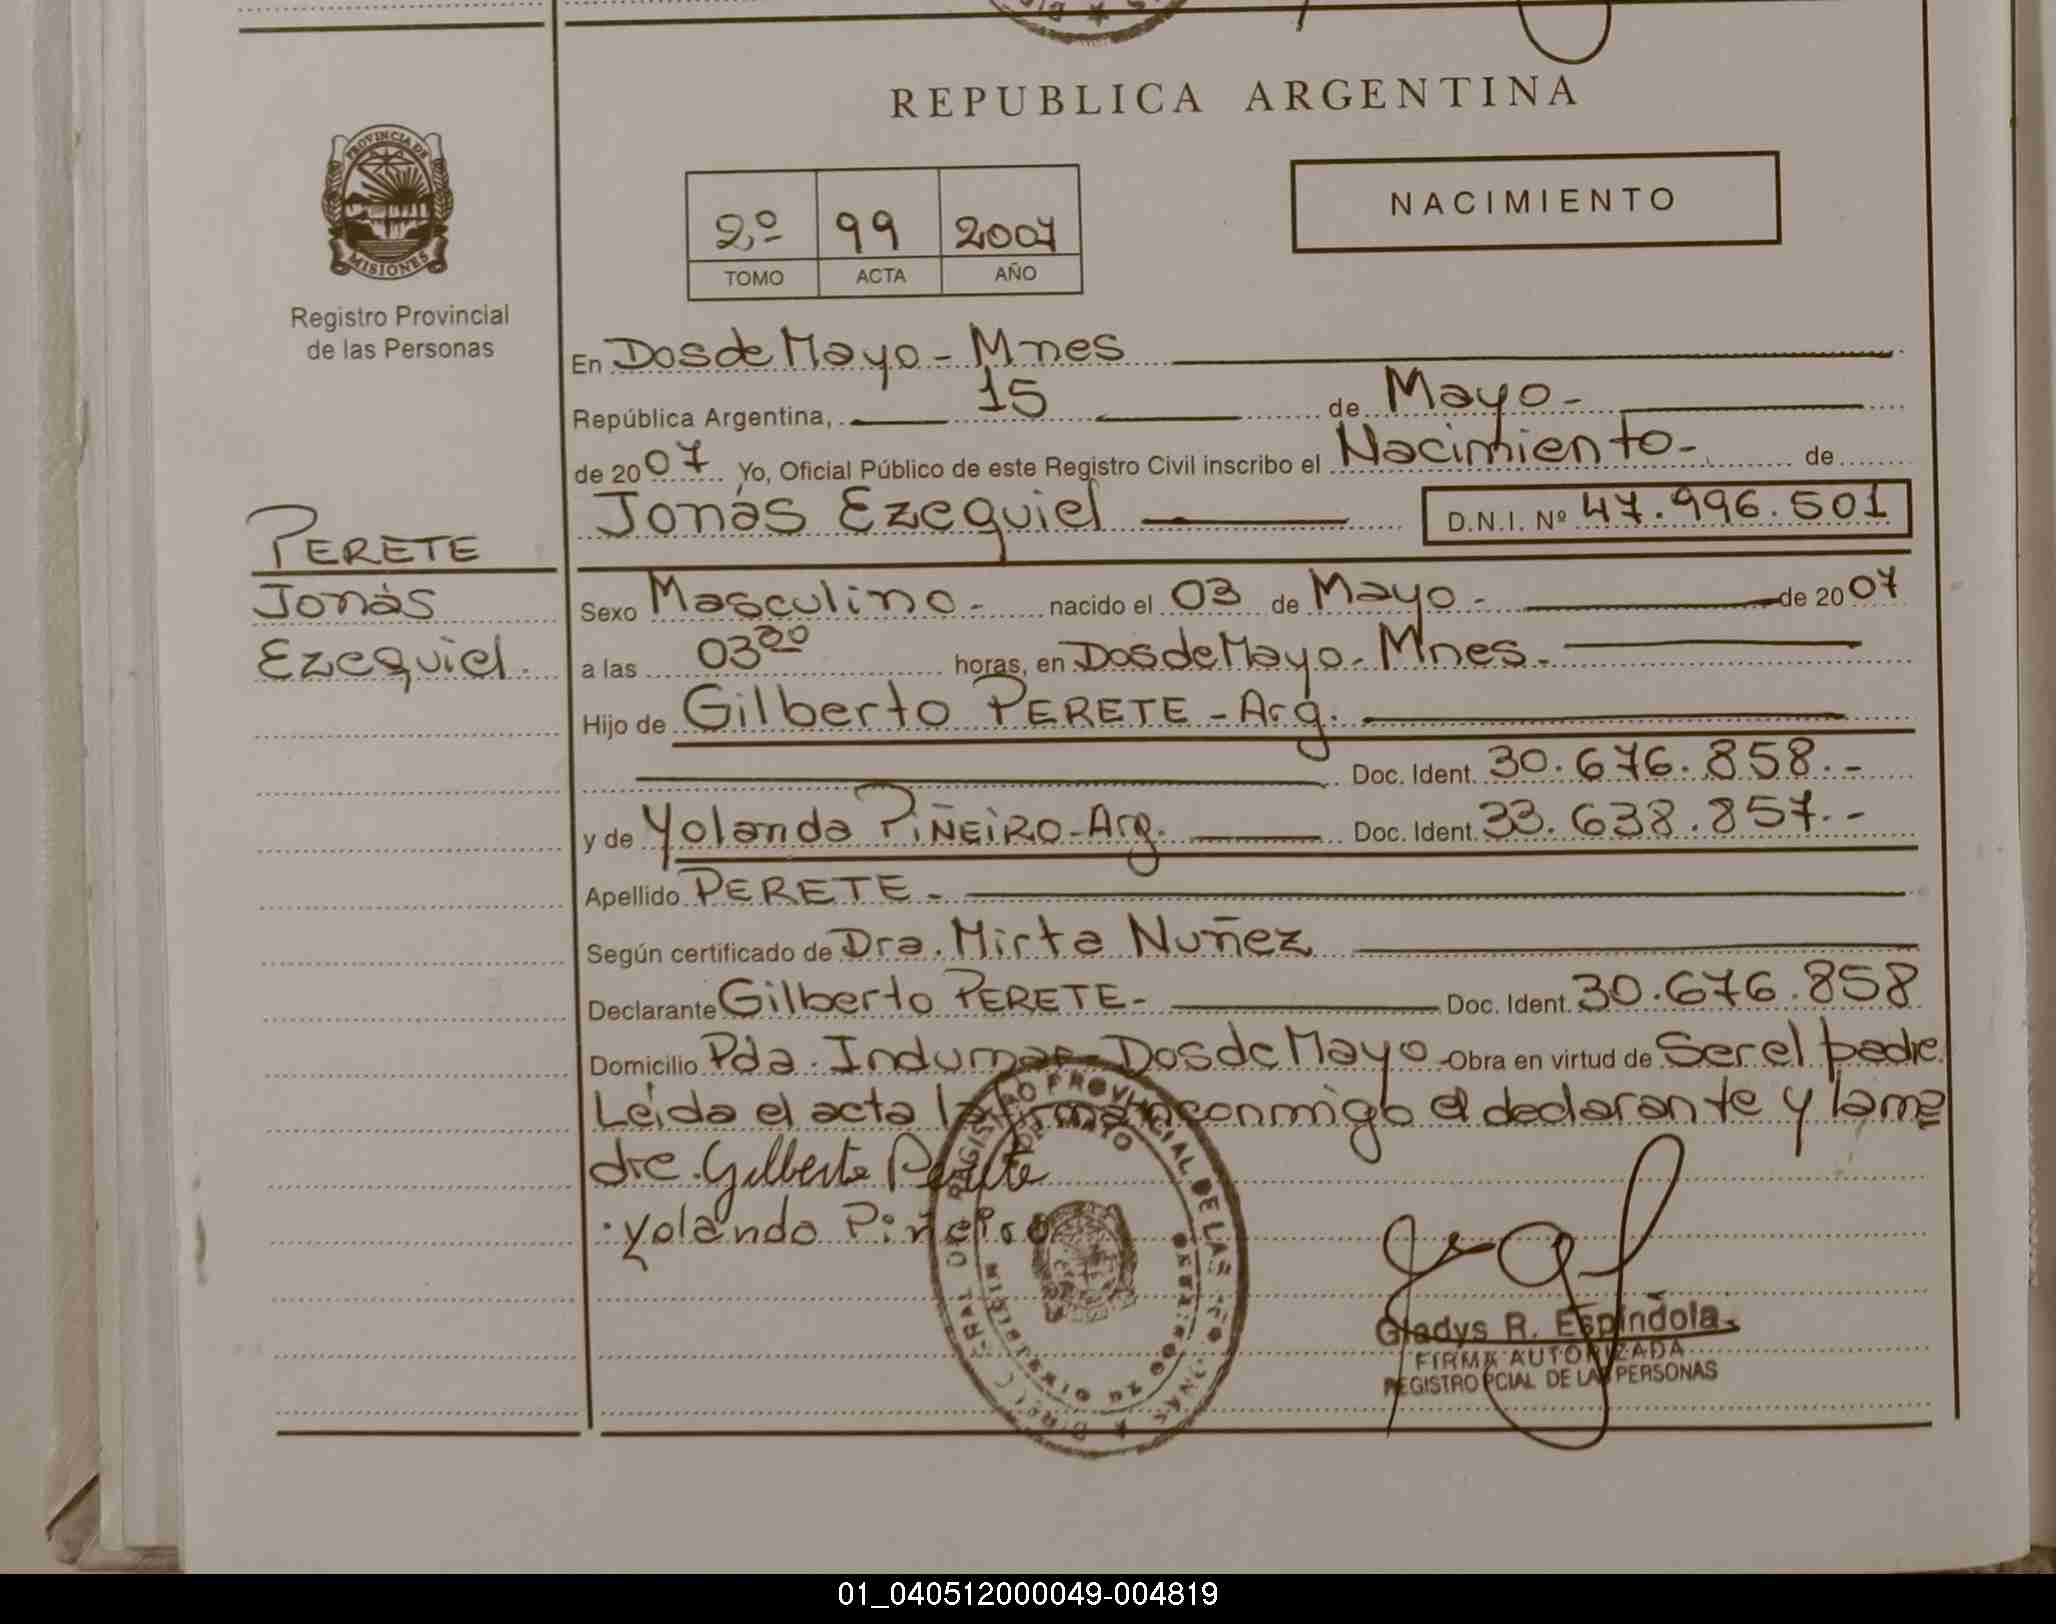 REPUBLICA ARGENTINA
PROVINCIA DE
MISIONES
Registro Provincial
de las Personas
2º 99 2007
TOMO ACTA AÑO
NACIMIENTO
En Dos de Mayo - Mnes
República Argentina, 15 de Mayo -
de 2007 Yo, Oficial Público de este Registro Civil inscribo el Nacimiento - de
Jonás Ezequiel D.N.I. Nº 47.996.501
PERETE
Jonás
Ezequiel.
Sexo Masculino - nacido el 03 de Mayo - de 2007
a las 03 horas, en Dos de Mayo - Mnes -
Hijo de Gilberto PERETE - Arg.
Doc. Ident. 30.676.858.-
y de Yolanda PIÑEIRO - Arg. Doc. Ident. 33.638.857.-
Apellido PERETE -
Según certificado de Dra. Mirta Nuñez
Declarante Gilberto PERETE - Doc. Ident. 30.676.858
Domicilio Pda. Indumar - Dos de Mayo - Obra en virtud de Ser el padre.
Leída el acta la firman conmigo el declarante y la ma
dre. Gilberto Perete
Yolanda Piñeiro
REGISTRO PROVINCIAL DE LAS
Gladys R. Espíndola
FIRMA AUTORIZADA
REGISTRO PCIAL DE LAS PERSONAS
01_040512000049-004819